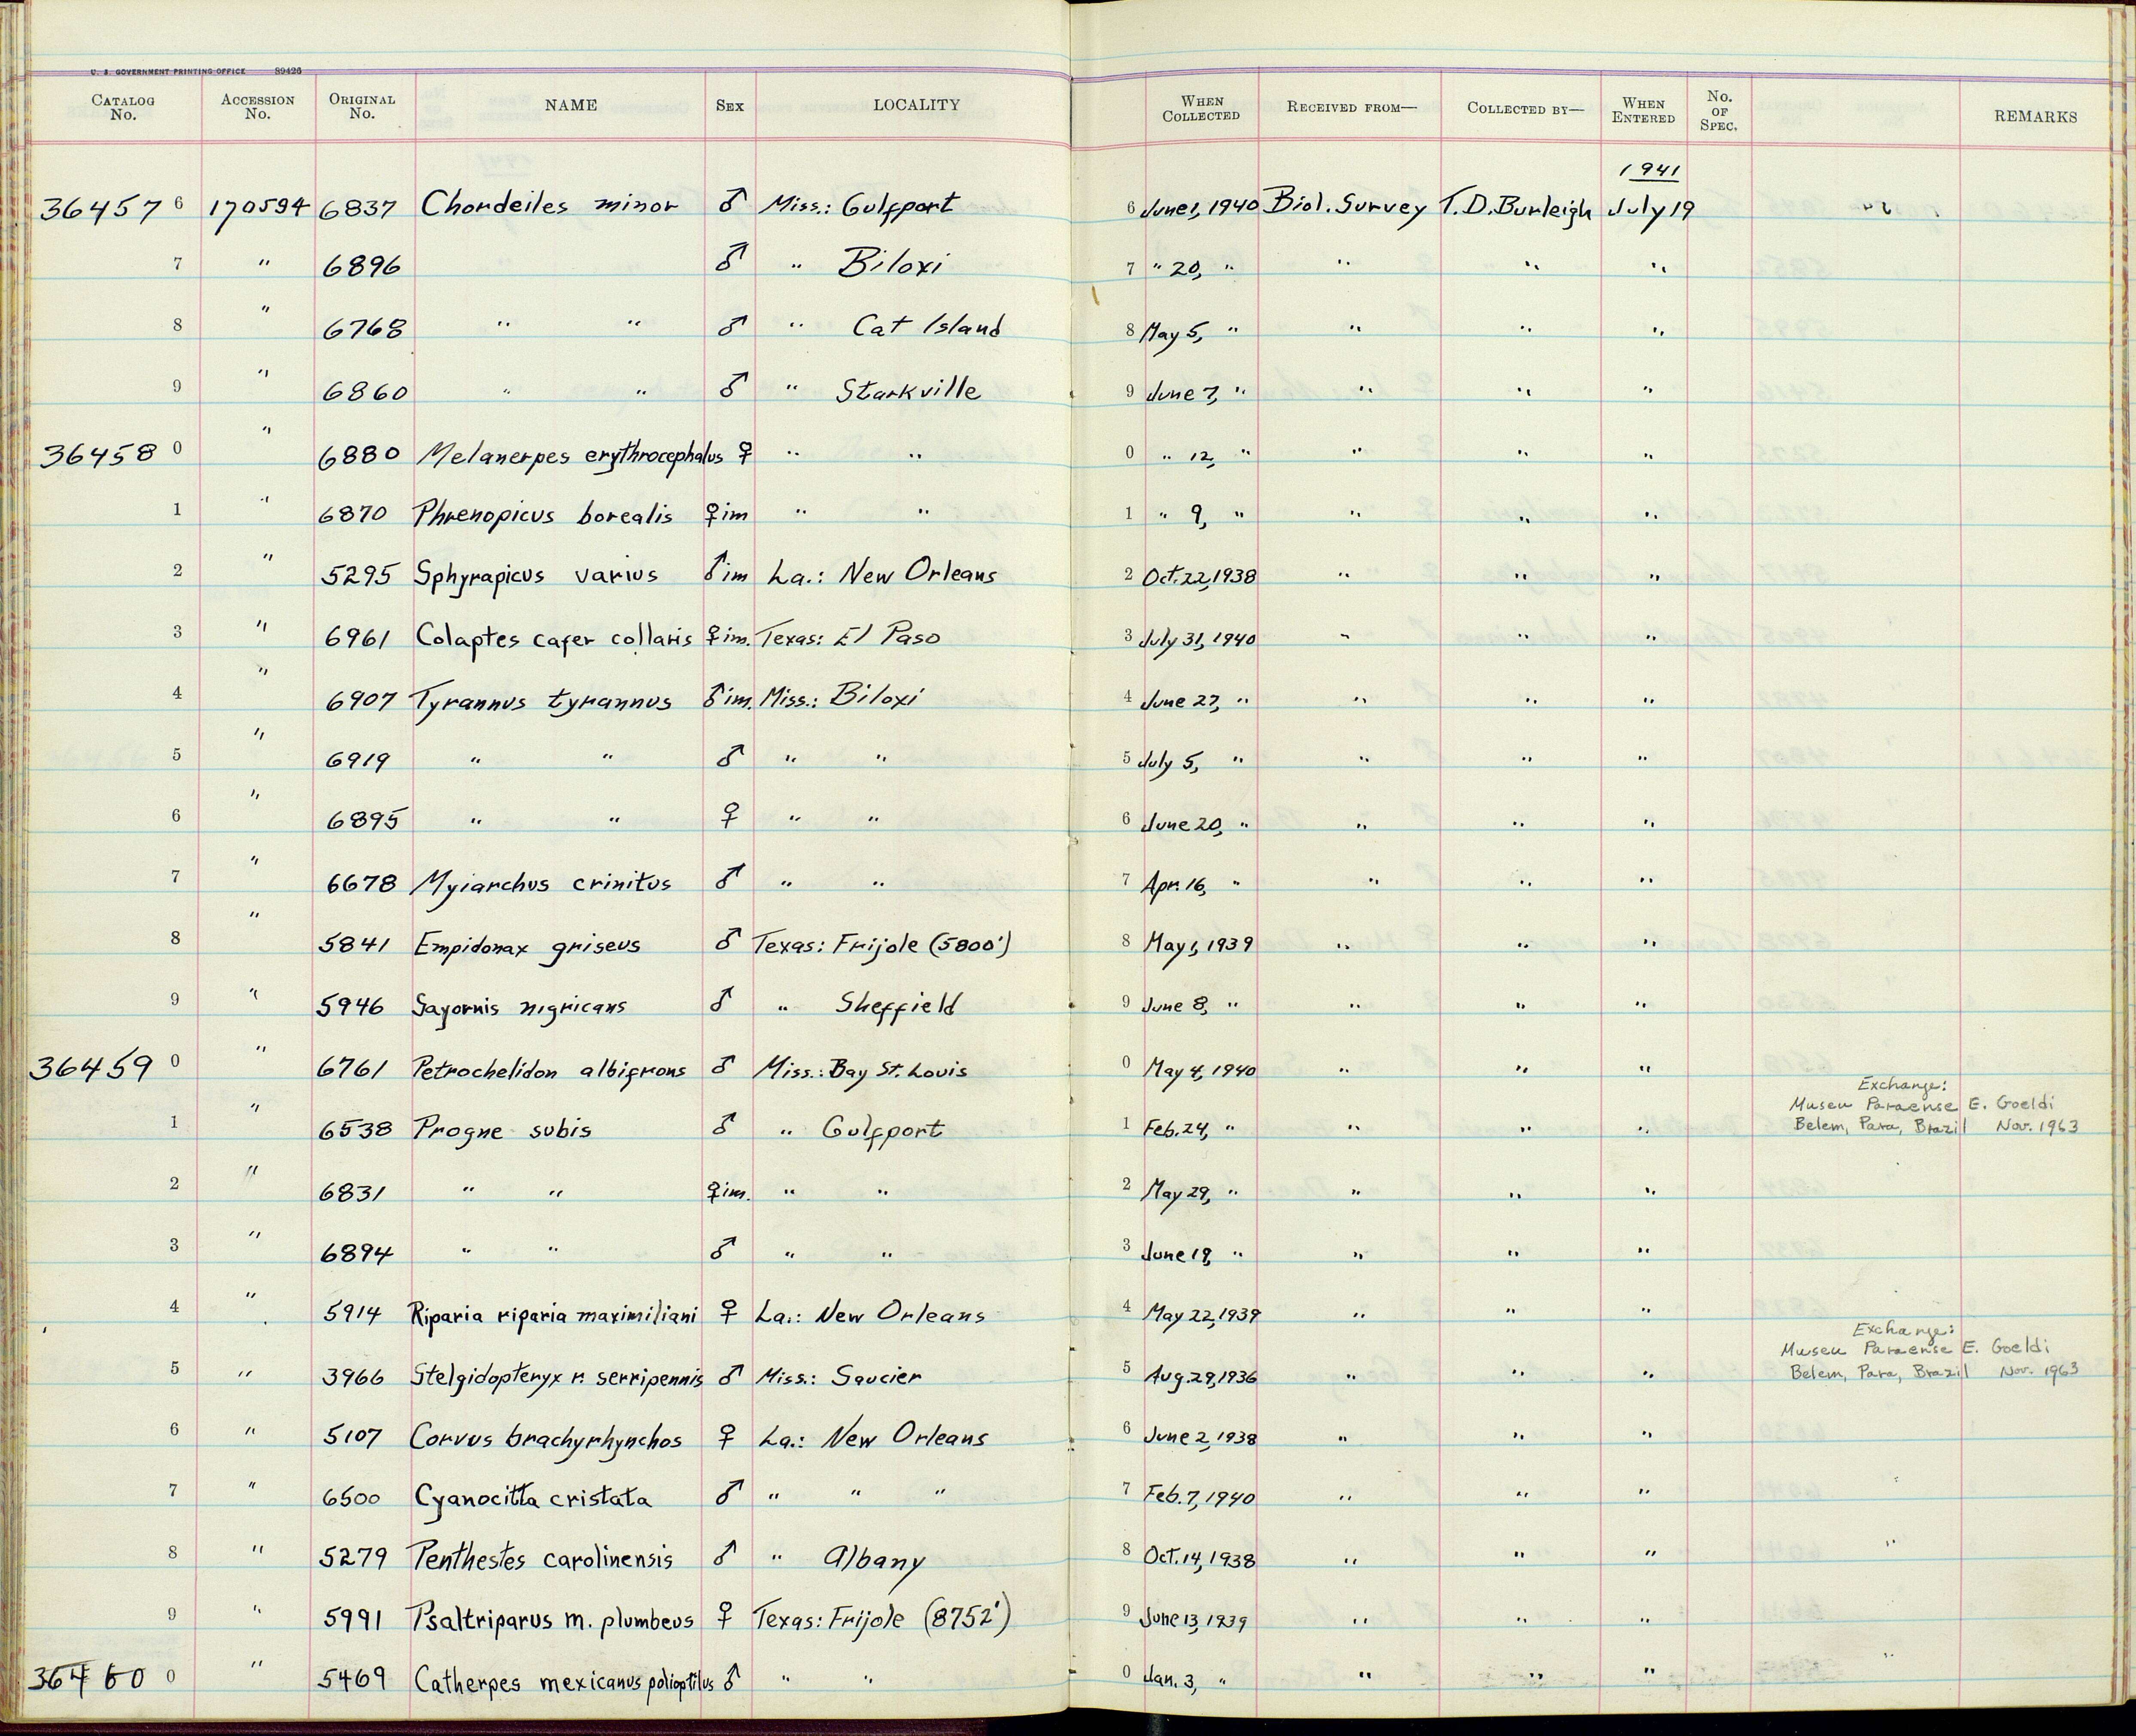 U. S. GOVERNMENT PRINTING OFFICE 89426
CATALOG No. ACCESSION No. ORIGINAL No. NAME SEX LOCALITY WHEN COLLECTED RECEIVED FROM— COLLECTED BY— WHEN ENTERED No. OF SPEC. REMARKS
1941
36457 6 170594 6837 Chordeiles minor ♂ Miss.: Gulfport 6 June 1, 1940 Biol. Survey T. D. Burleigh July 19
7 " 6896 ♂ " Biloxi 7 " 20, " " " "
8 " 6768 " " ♂ " Cat Island 8 May 5, " " " "
9 " 6860 " " ♂ " Starkville 9 June 7, " " " "
36458 0 " 6880 Melanerpes erythrocephalus ♀ " " 0 " 12, " " " "
1 " 6870 Phrenopicus borealis ♀ im " " 1 " 9, " " " "
2 " 5295 Sphyrapicus varius ♂ im La.: New Orleans 2 Oct. 22, 1938 " " "
3 " 6961 Colaptes cafer collaris ♀ im. Texas: El Paso 3 July 31, 1940 " " "
4 " 6907 Tyrannus tyrannus ♂ im. Miss.: Biloxi 4 June 27, " " " "
5 " 6919 " " ♂ " " 5 July 5, " " " "
6 " 6895 " " ♀ " " 6 June 20, " " " "
7 " 6678 Myiarchus crinitus ♂ " " 7 Apr. 16, " " " "
8 " 5841 Empidonax griseus ♂ Texas: Frijole (5800') 8 May 1, 1939 " " "
9 " 5946 Sayornis nigricans ♂ " Sheffield 9 June 8, " " " "
36459 0 " 6761 Petrochelidon albifrons ♂ Miss.: Bay St. Louis 0 May 4, 1940 " " "
Exchange:
Museu Paraense E. Goeldi
1 " 6538 Progne subis ♂ " Gulfport 1 Feb. 24, " " " " Belem, Para, Brazil Nov. 1963
2 " 6831 " " ♀ im. " " 2 May 29, " " " "
3 " 6894 " " ♂ " " 3 June 19, " " " "
4 " 5914 Riparia riparia maximiliani ♀ La.: New Orleans 4 May 22, 1939 " " "
Exchange:
Museu Paraense E. Goeldi
5 " 3966 Stelgidopteryx r. serripennis ♂ Miss.: Saucier 5 Aug. 29, 1936 " " " Belem, Para, Brazil Nov. 1963
6 " 5107 Corvus brachyrhynchos ♀ La.: New Orleans 6 June 2, 1938 " " "
7 " 6500 Cyanocitta cristata ♂ " " " 7 Feb. 7, 1940 " " "
8 " 5279 Penthestes carolinensis ♂ " Albany 8 Oct. 14, 1938 " " " "
9 " 5991 Psaltriparus m. plumbeus ♀ Texas: Frijole (8752') 9 June 13, 1939 " " "
36460 0 " 5469 Catherpes mexicanus polioptilus ♂ " " 0 Jan. 3, " " " " "